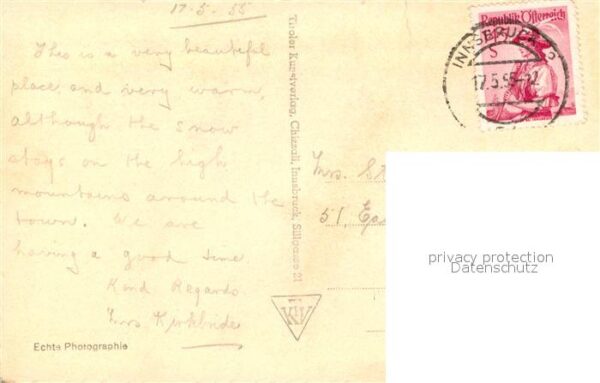 17-5-55
This is a very beautiful
place and very warm,
although the snow
stays on the high
mountains around the
town. We are
having a good time
Kind Regards
Mrs Kirkbride
Echte Photographie
Tiroler Kunstverlag, Chizzali, Innsbruck, Sillgasse 21
Republik Österreich
INNSBRUCK
17.5.55-12
Mrs. S
51, Eas
privacy protection
Datenschutz